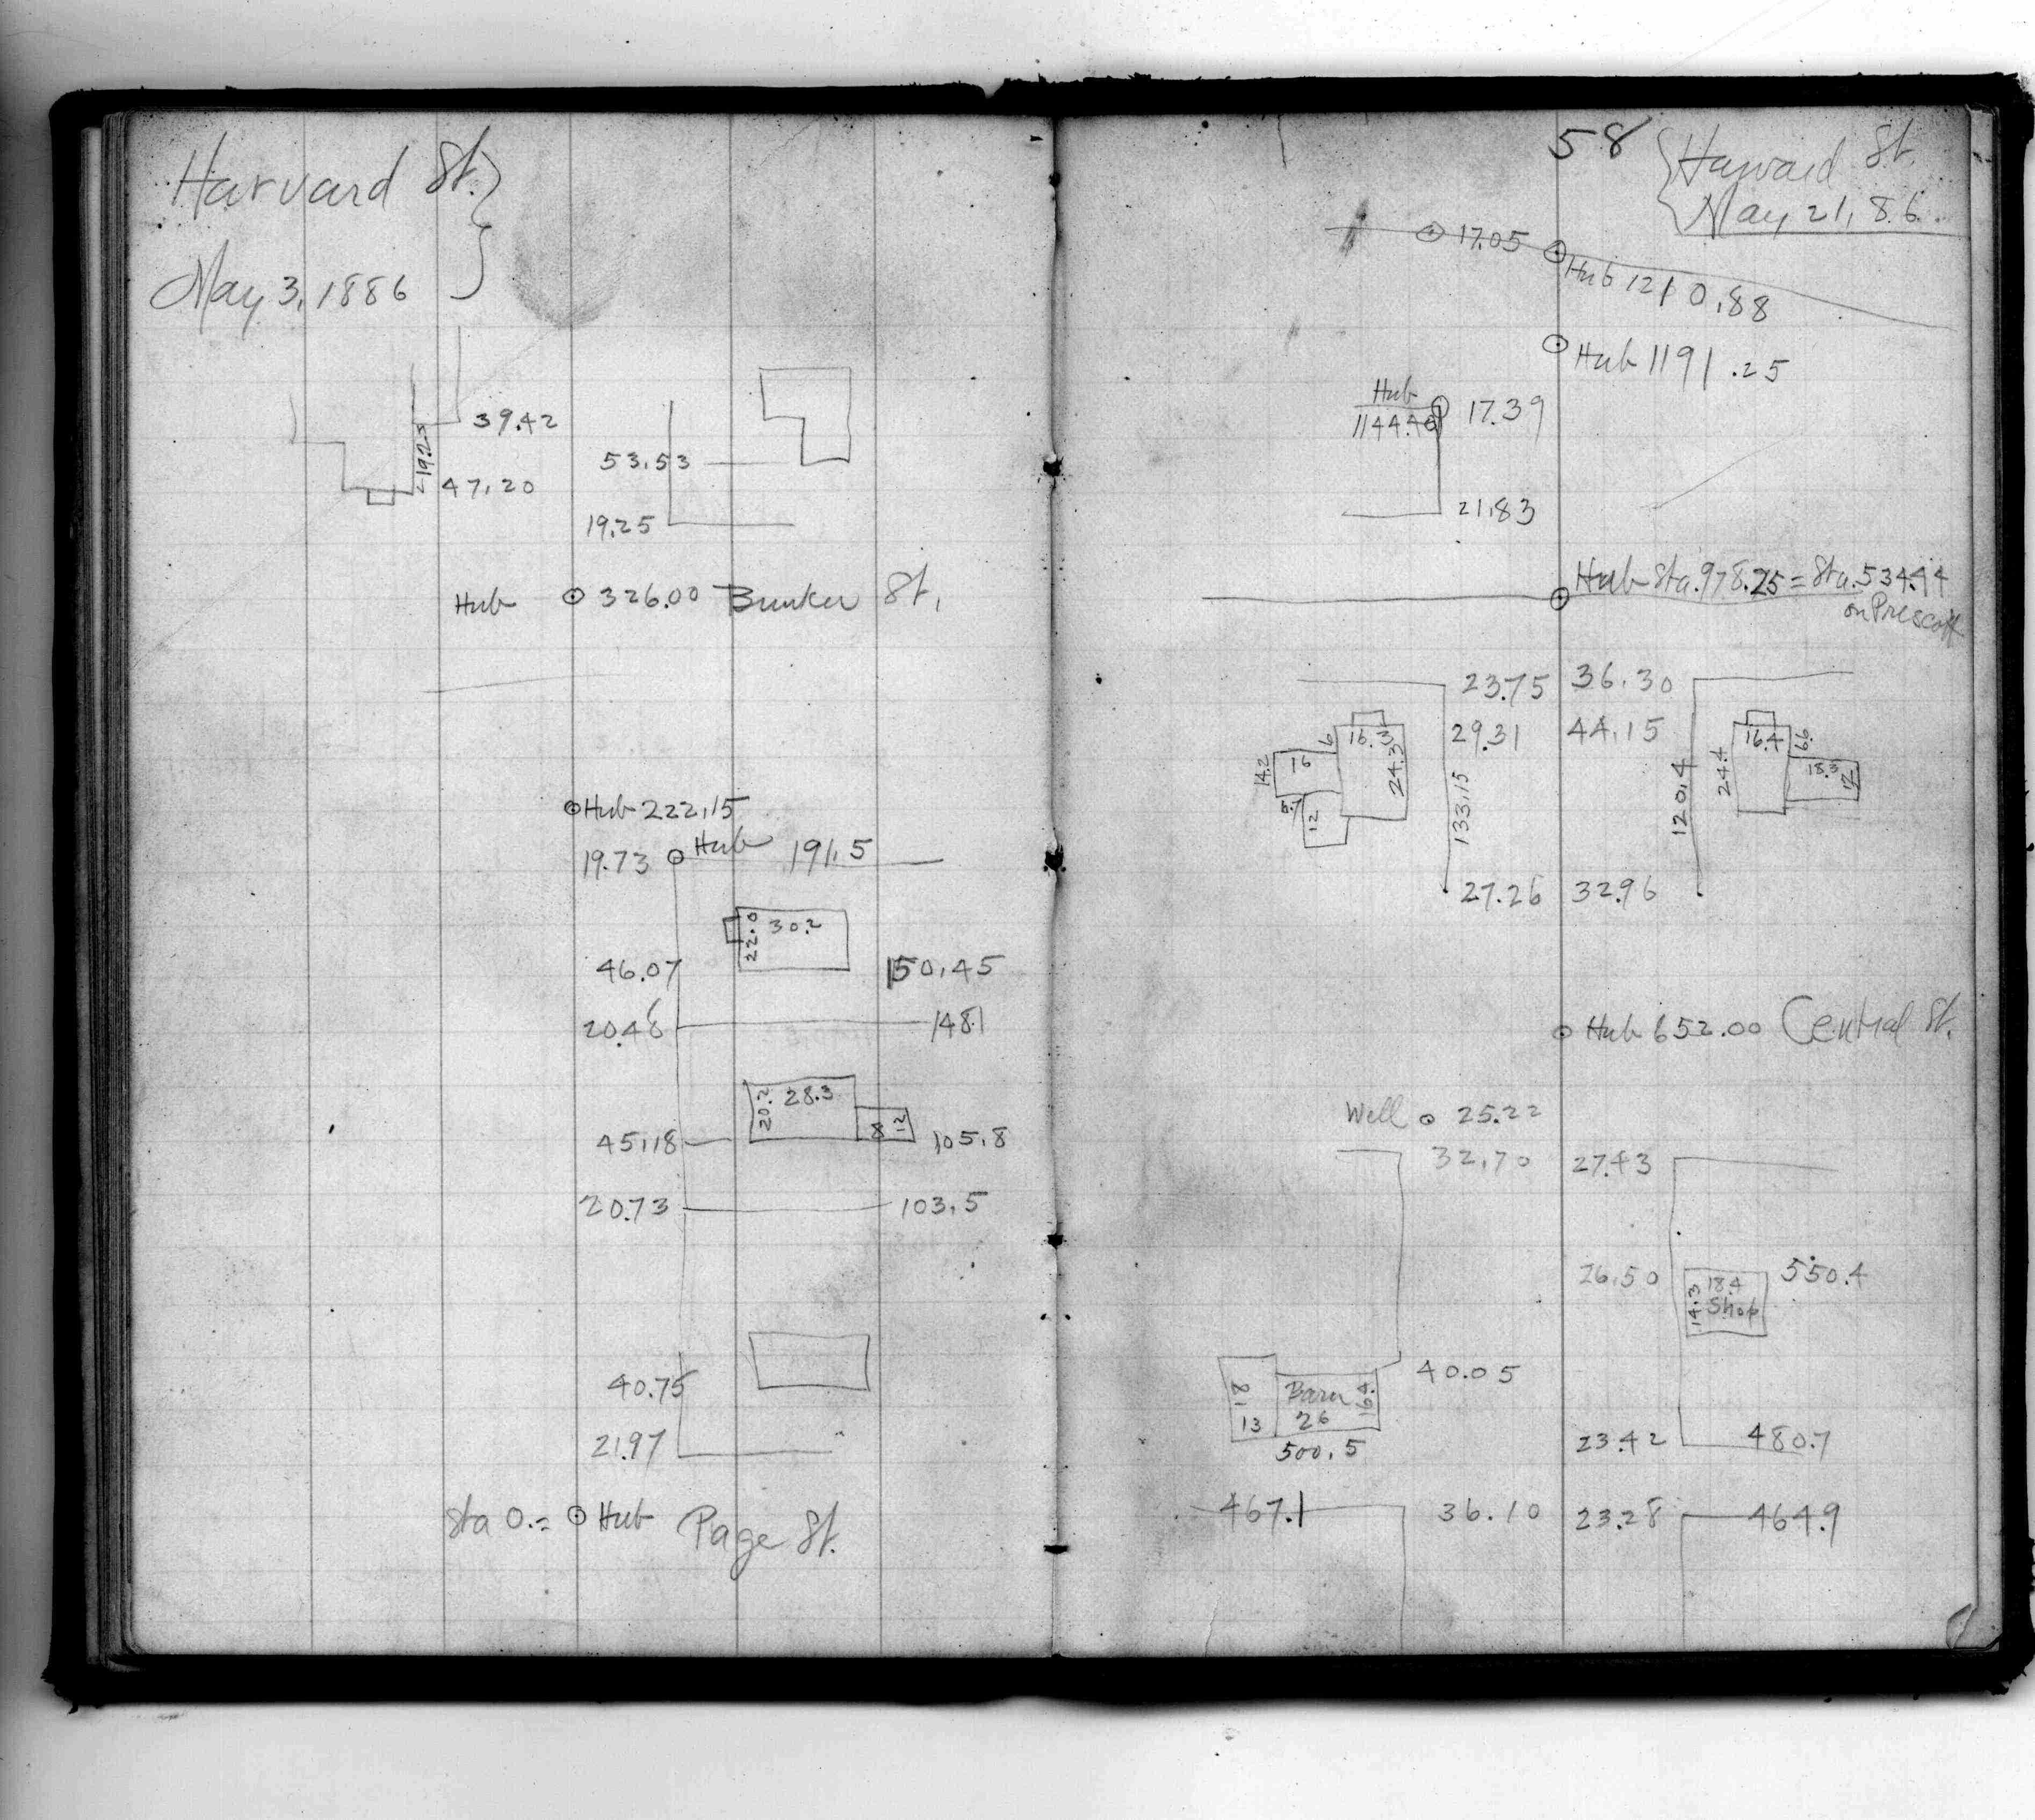 Harvard St.
May 3, 1886
39.42
419.25
47.20
53.53
19.25
Hub 326.00 Bunker St.
Hub 222.15
19.73 Hub 191.5
22.0 30.2
46.07 150.45
20.46 148.1
20.2 28.3
8 12
45.18 105.8
20.73 103.5
40.75
21.97
Sta 0.= Hub Page St.
58
Harvard St.
May 21, 86.
17.05
Hub 1210.88
Hub 1191.25
Hub
1144.46 17.39
21.83
Hub Sta. 978.25 = Sta. 534.44
on Prescott
23.75 36.30
29.31 44.15
6 16.3
14.2 15 24.3
5.7 12
133.15
120.4
16.4 6.6
24.4 18.3 12
27.26 32.96
Hub 652.00 Central St.
Well 25.22
32.70 27.43
26.50 550.4
14.3 18.4
Shop
40.05
18 Barn 16.4
13 26
500.5
23.42 480.7
467.1 36.10 23.28 464.9